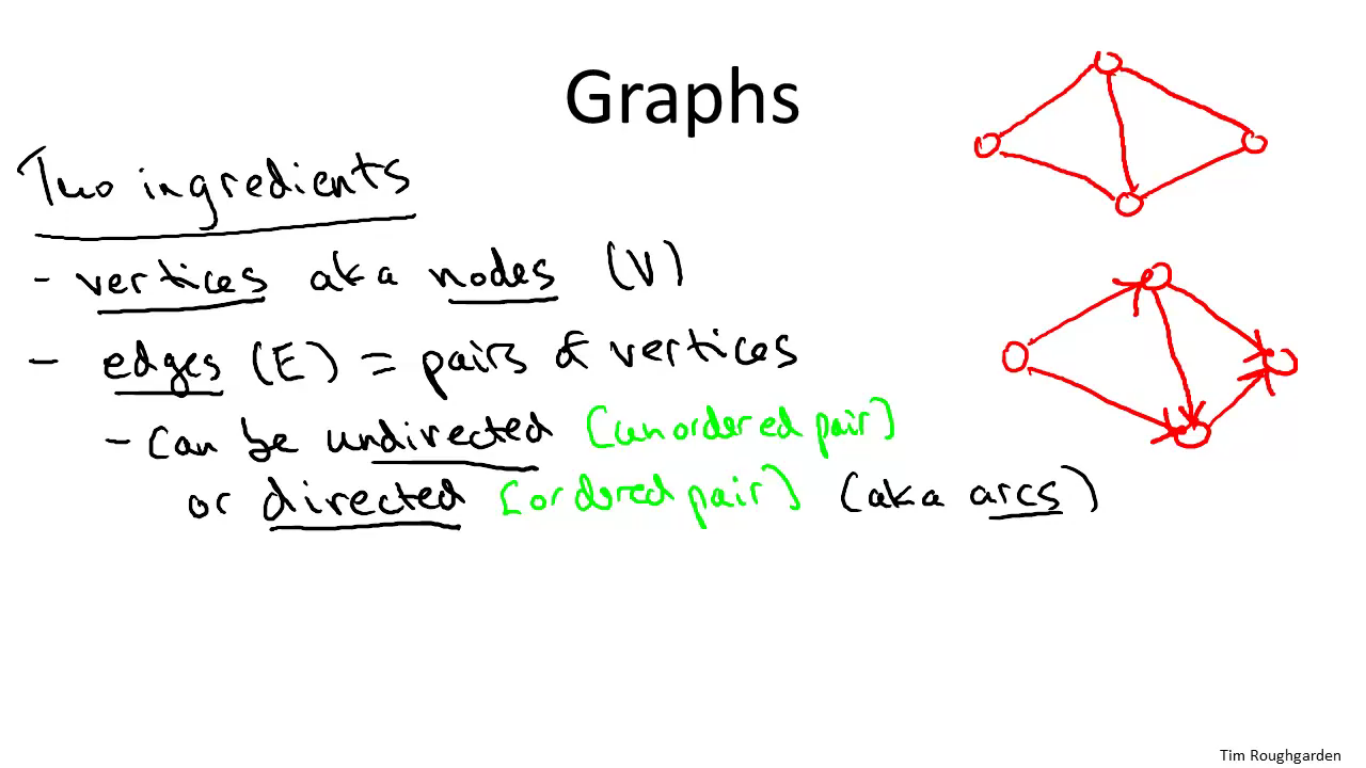 Graphs
Two ingredients
- vertices aka nodes (V)
- edges (E) = pairs of vertices
- can be undirected [unordered pair]
or directed [ordered pair] (aka arcs)
Tim Roughgarden